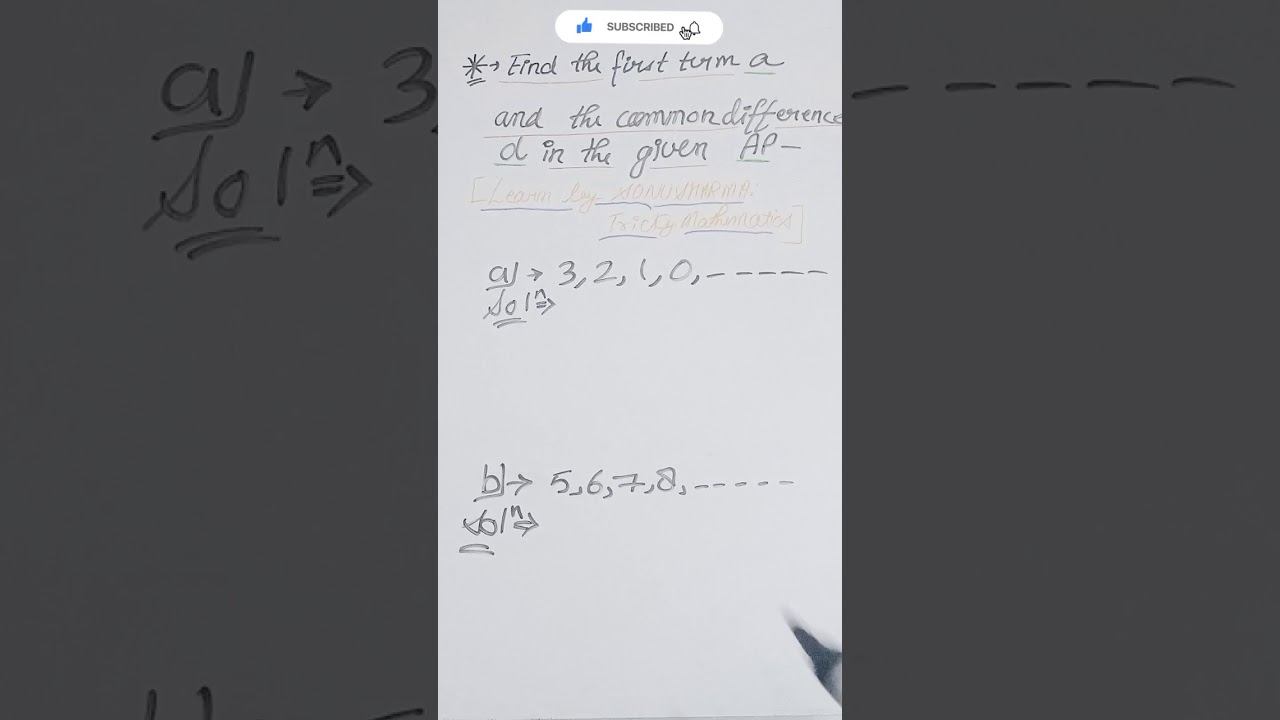 SUBSCRIBED
*→ Find the first term a
and the common difference
d in the given AP—
[Learn by SONUSHARMA:
Tricky Mathematics]
a) → 3, 2, 1, 0, - - - - - -
Solⁿ⇒
b)→ 5, 6, 7, 8, - - - - -
Solⁿ⇒
a) → 3,
Solⁿ⇒